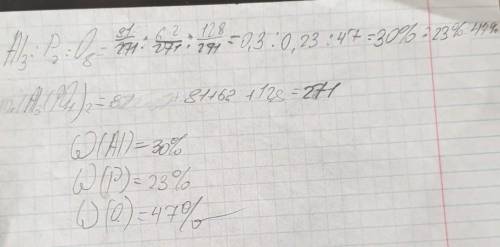 Al₃ : P₂ : O₈ = 81/271 : 62/271 : 128/271 = 0,3 : 0,23 : 47 = 30% : 23%
(PO₄)₂ = 81+62+128=271
ω(Al)=30%
ω(P)=23%
ω(O)=47%